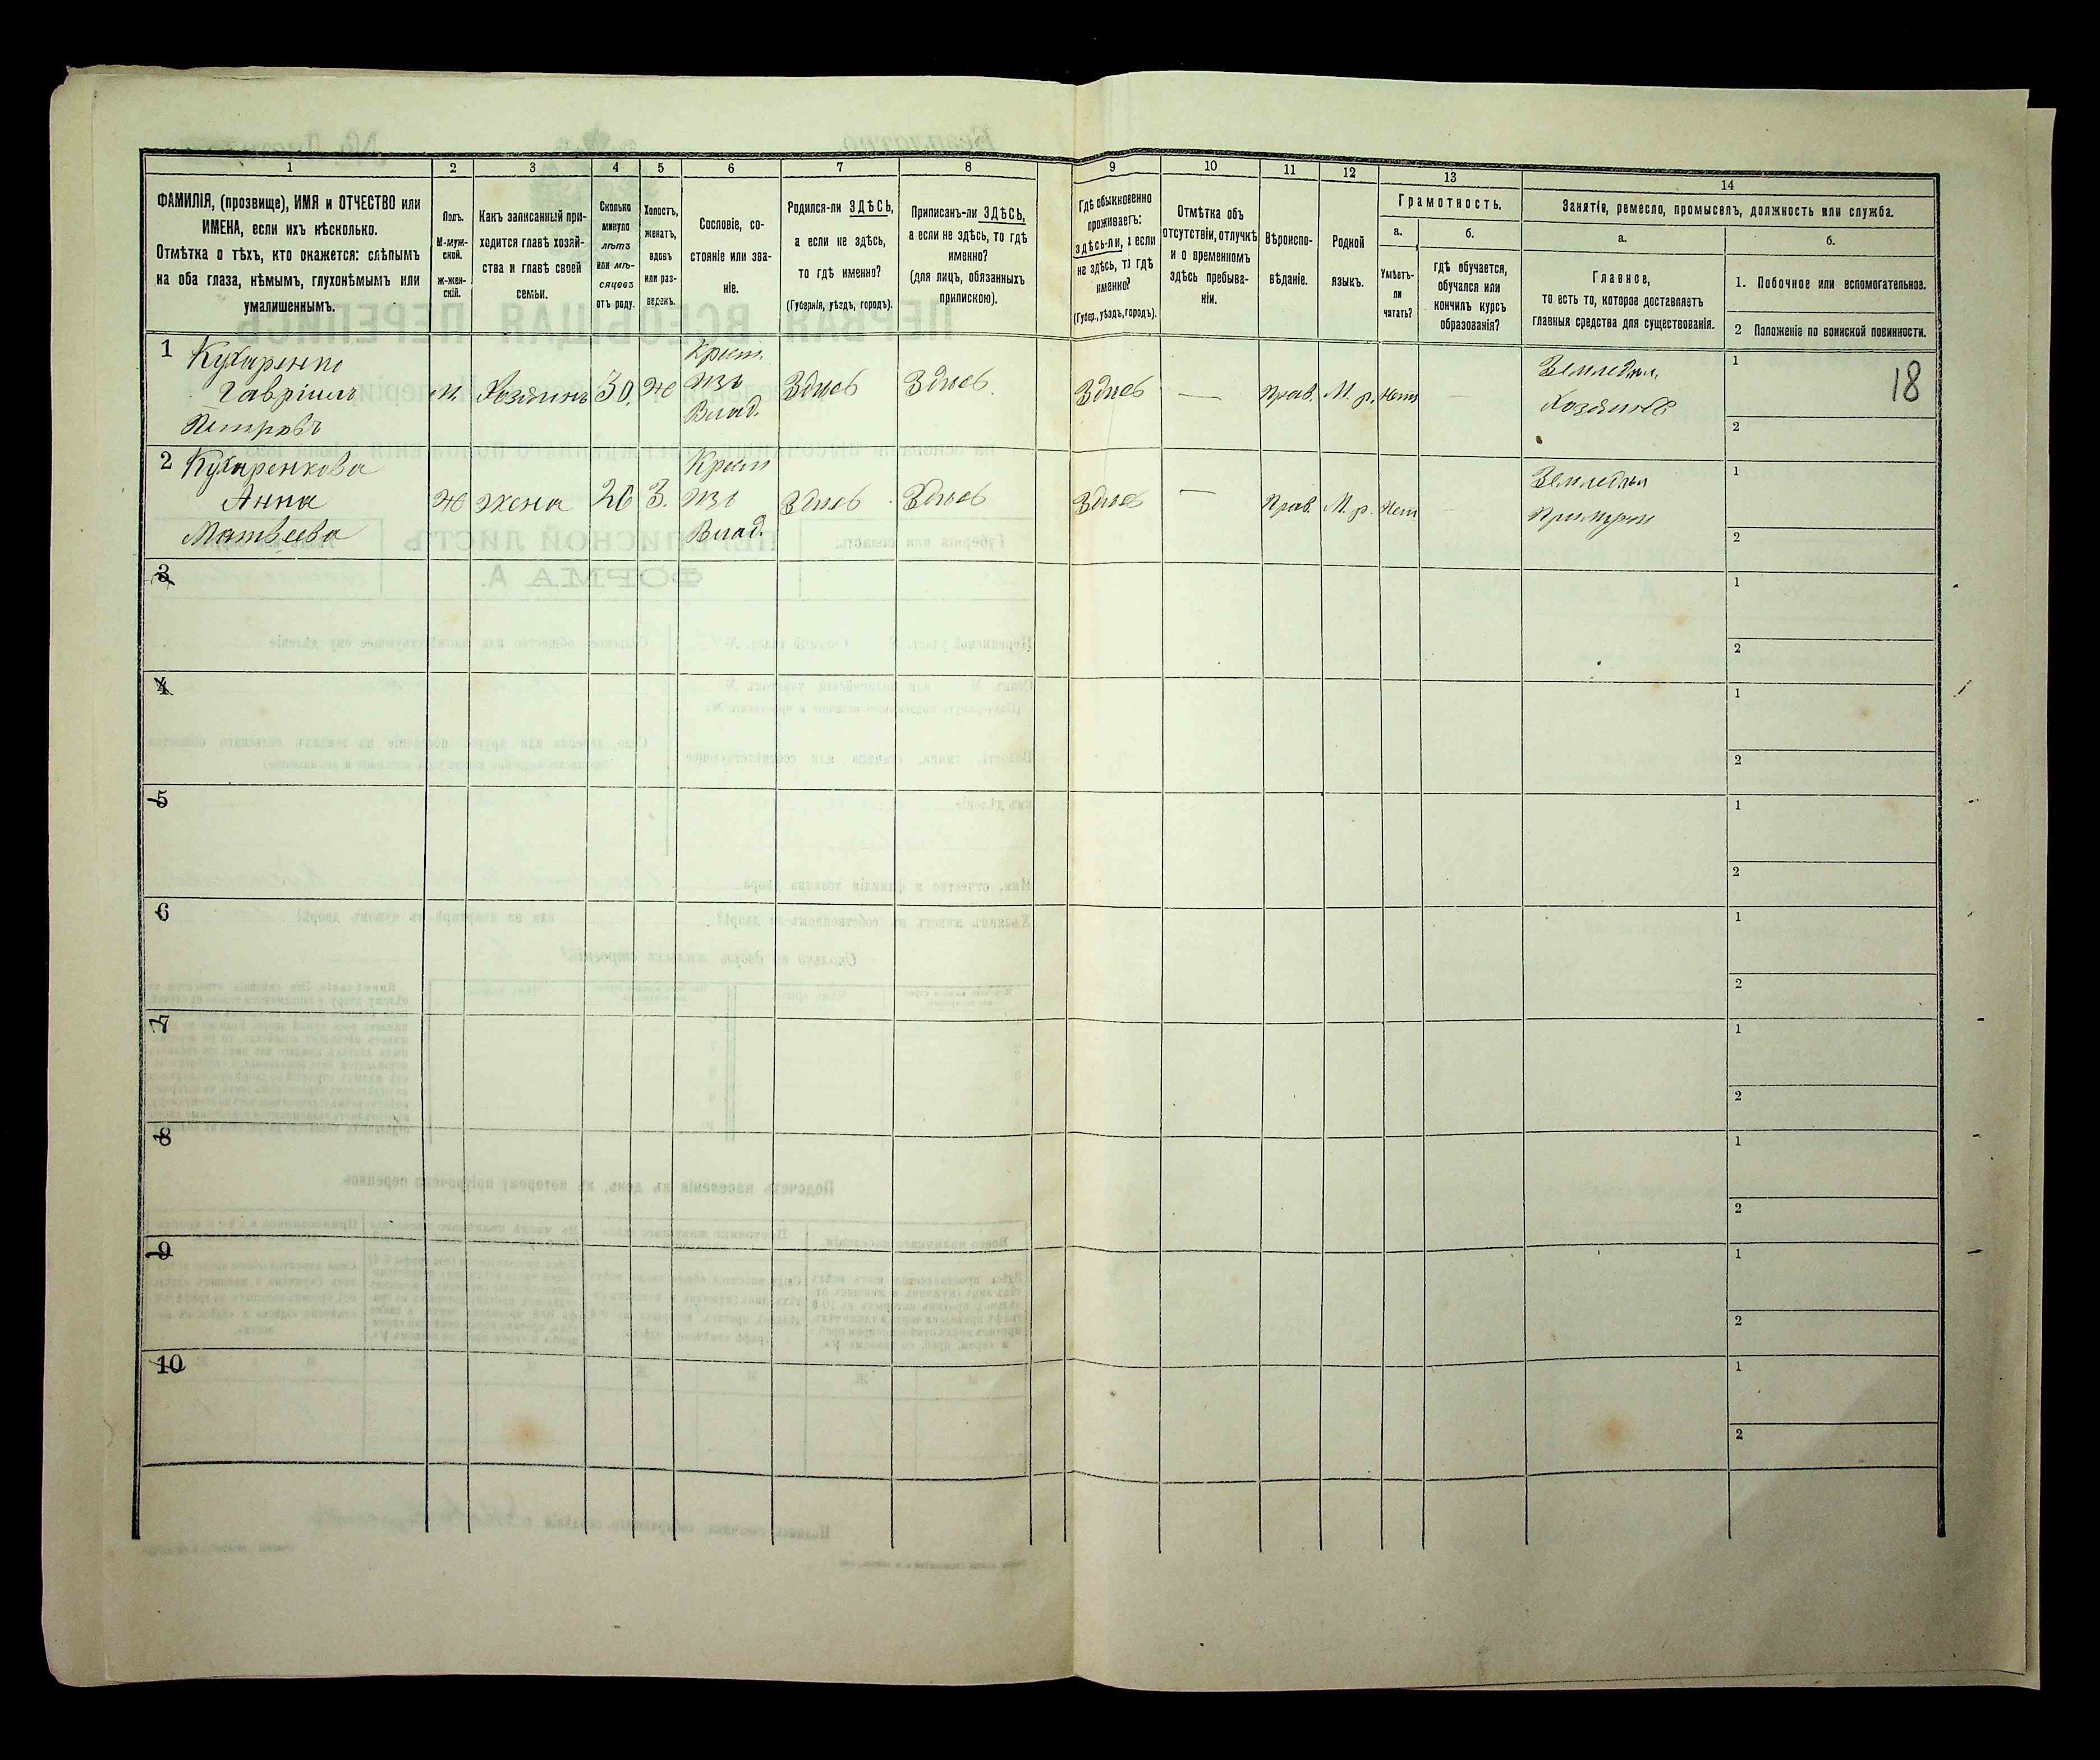 1
2
3
4
5
6
7
8
9
10
11
12
13
14
ФАМИЛІЯ, (прозвище), ИМЯ и ОТЧЕСТВО или
ИМЕНА, если ихъ нѣсколько.
Отмѣтка о тѣхъ, кто окажется: слѣпымъ
на оба глаза, нѣмымъ, глухонѣмымъ или
умалишеннымъ.
Полъ.
М-муж-
ской.
ж-жен-
скій.
Какъ записанный при-
ходится главѣ хозяй-
ства и главѣ своей
семьи.
Сколько
минуло
лѣтъ
или мѣ-
сяцевъ
отъ роду.
Холостъ,
женатъ,
вдовъ
или раз-
веденъ.
Сословіе, со-
стояніе или зва-
ніе.
Родился-ли ЗДѢСЬ,
а если не здѣсь,
то гдѣ именно?
(Губернія, уѣздъ, городъ).
Приписанъ-ли ЗДѢСЬ,
а если не здѣсь, то гдѣ
именно?
(для лицъ, обязанныхъ
припискою).
Гдѣ обыкновенно
проживаетъ:
здѣсь-ли, а если
не здѣсь, то гдѣ
именно?
(Губер., уѣздъ, городъ).
Отмѣтка объ
отсутствіи, отлучкѣ
и о временномъ
здѣсь пребыва-
ніи.
Вѣроиспо-
вѣданіе.
Родной
языкъ.
Грамотность.
а.
б.
Умѣетъ-
ли
читать?
гдѣ обучается,
обучался или
кончилъ курсъ
образованія?
Занятіе, ремесло, промыселъ, должность или служба.
а.
б.
Главное,
то есть то, которое доставляетъ
главныя средства для существованія.
1. Побочное или вспомогательное.
2 Положеніе по воинской повинности.
1 Кухаренко
Гавріилъ
Петровъ
М.
Хозяинъ
30.
Ж
Крест.
изъ
Влад.
Здѣсь
Здѣсь
Здѣсь
—
Прав.
М. р.
Нѣтъ
Земледѣл.
Хозяинъ
1
2
18
2 Кухаренкова
Анна
Матвѣева
Ж
Жена
26
З.
Крест
изъ
Влад.
Здѣсь
Здѣсь
Здѣсь
—
Прав.
М. р.
Нѣтъ
Земледѣл
При муж
1
2
3
1
2
4
1
2
5
1
2
6
1
2
7
1
2
8
1
2
9
1
2
10
1
2